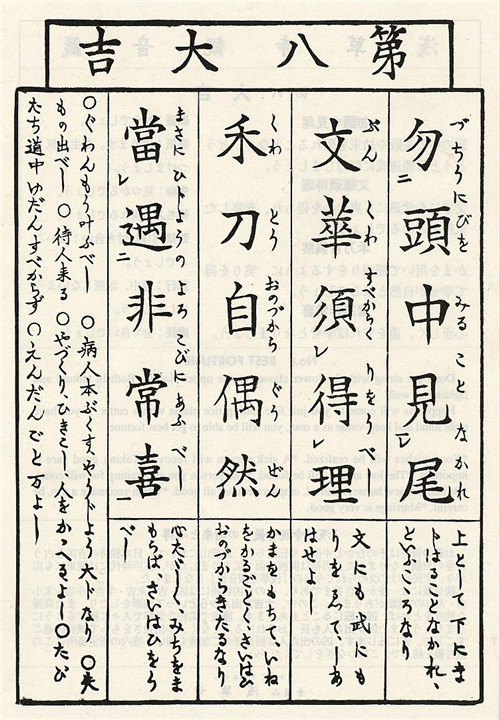 第八大吉
づちうにびを みること なかれ
勿ニ頭中見レ尾
上として下にま
トはるゝとなかれ、
といふこゝろなり
ぶん くわ すべからく りをうべし
文華須レ得レ理
文にも武にも
はせよし
くわ とう おのづから ぐう ぜん
禾刀自偶然
かまをもちて、いね
をかるごとく、さいはひ
おのづからきたるなり
まさに ひじやうの よろこびにあふ べし
當遇ニ非常喜
心たゞしく、みちをま
もらば、さいはひをう
べし
〇ぐわんもう叶ふべし 〇病人本ぶくす、やうじよう大トなり 〇失
もの出べし 〇待人来る 〇やづくり、ひきこし、人をかゝゆるよし 〇たび
たち道中ゆだんすべからず 〇えんだんごと万よし